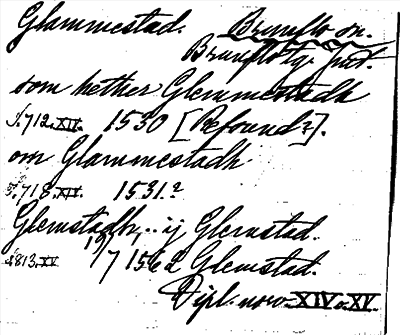 Glammestad. Brunflo sn.
Brunflo tg. Jmtl.
som hether Glemmestadh
S. 712. XIV. 1530 [Refsund?].
om Glammestadh
S. 718. XIV. 1531.?
Glemstadh, .. ij Glemstad.
S. 813. XV 19/7 1562 Glemstad.
Dipl. norv. XIV o. XV.